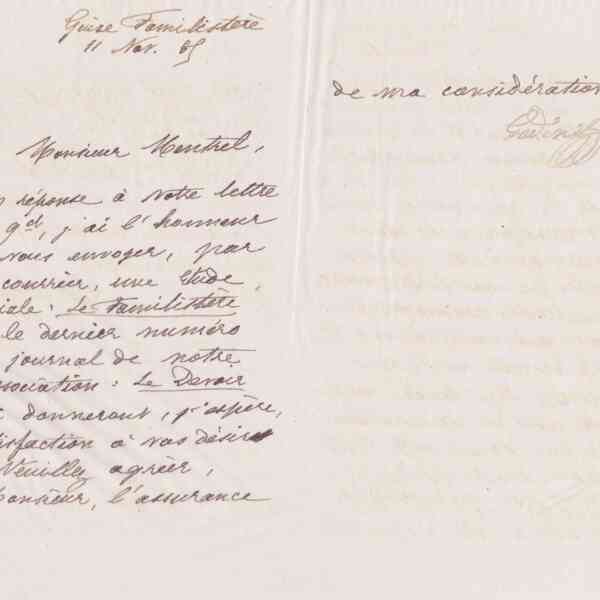 Guise Familistère
11 Nov. 85
Monsieur Montrel,
réponse à votre lettre
9 ct, j'ai l'honneur
vous envoyer, par
courrier, une Etude
iale : Le Familistère
le dernier numéro
journal de notre
sociation : Le Devoir
donneront, j'espère,
isfaction à vos désirs
Veuillez agréer,
Monsieur, l'assurance
de ma considération